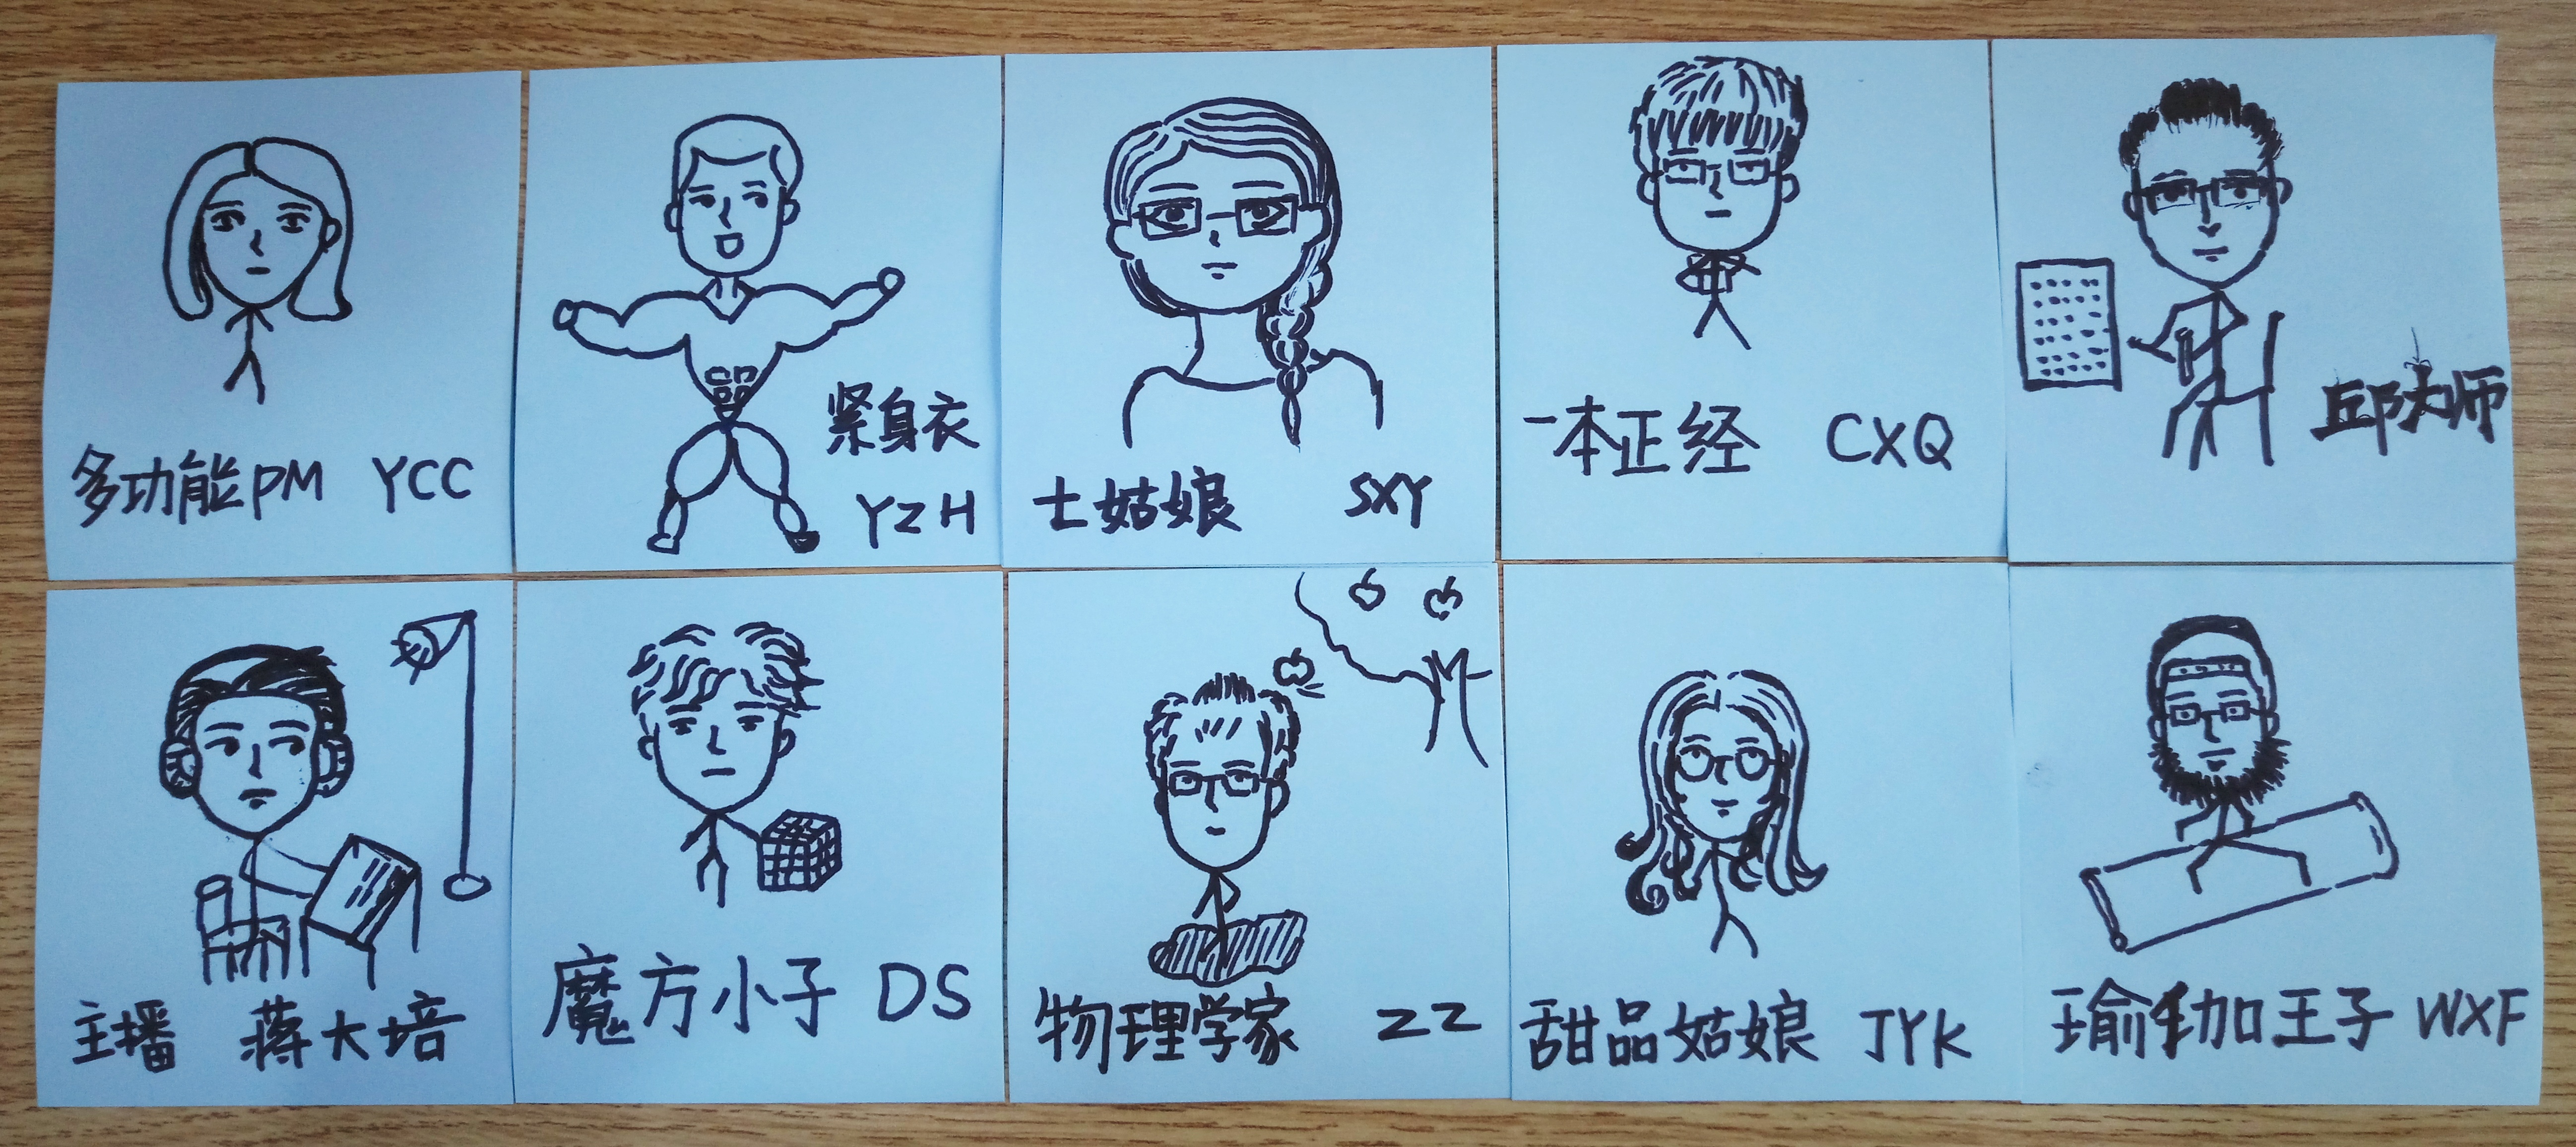 多功能PM YCC
紧身衣
YZH
士姑娘 SXY
一本正经 CXQ
邱大师
主播 蒋大培
魔方小子 DS
物理学家 ZZ
甜品姑娘 JYK
瑜伽王子 WXF